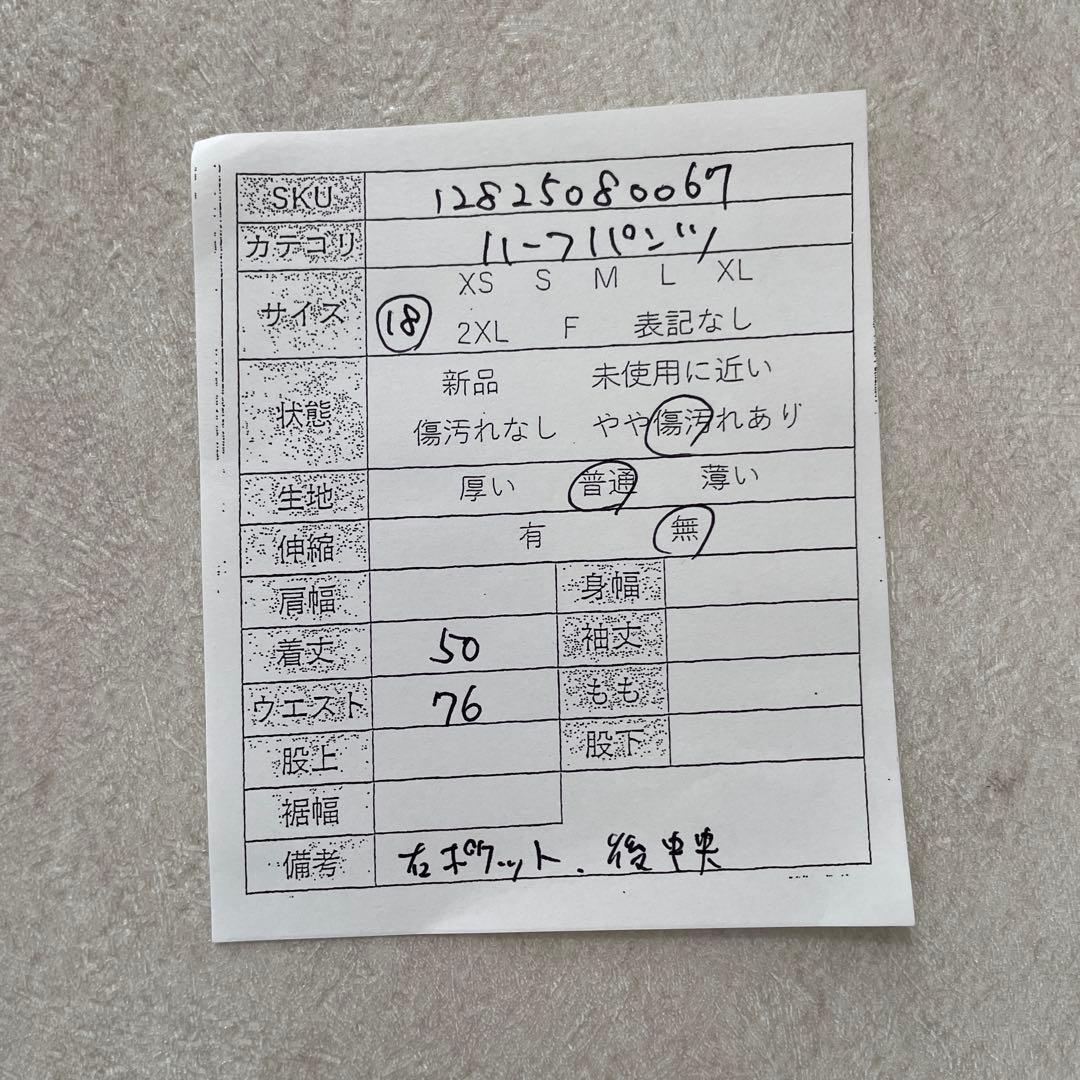 SKU 12825080067
カテゴリ ハーフパンツ
XS S M L XL
サイズ 18 2XL F 表記なし
新品 未使用に近い
状態
傷汚れなし やや傷汚れあり
生地 厚い 普通 薄い
伸縮 有 無
肩幅 身幅
着丈 50 袖丈
ウエスト 76 もも
股上 股下
裾幅
備考 右ポケット、後中央